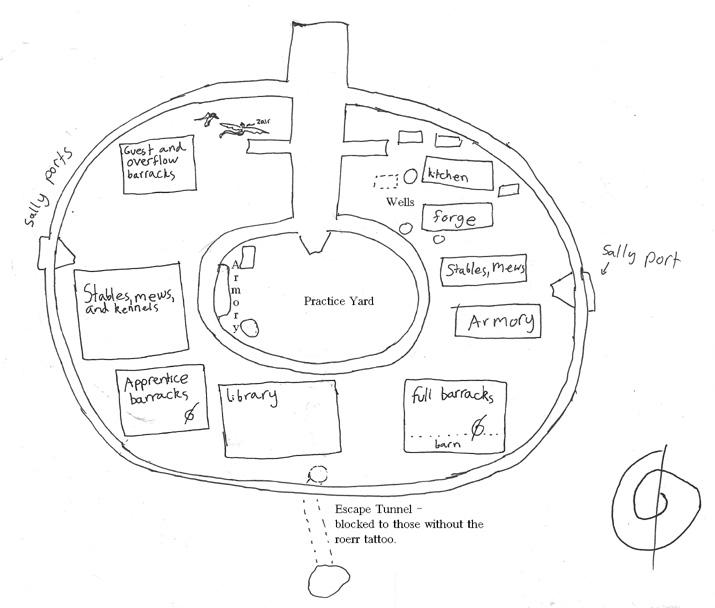 zair
Guest and
overflow
barracks
Sally ports
kitchen
Wells
forge
Stables, mews
Sally port
Armory
Armory
Practice Yard
Stables, mews,
and kennels
Apprentice
barracks
Library
full barracks
barn
Escape Tunnel -
blocked to those without the
roerr tattoo.